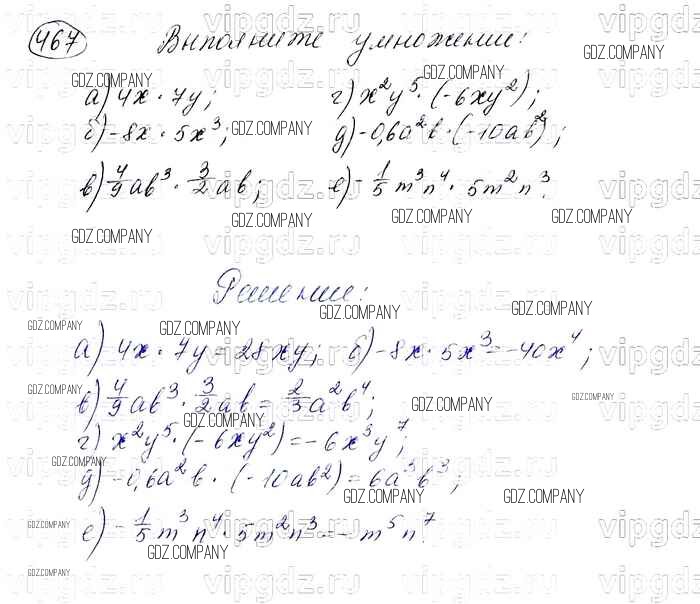 467 Выполните умножение:
а) 4x · 7y; г) x²y⁵ · (-6xy²);
б) -8x · 5x³; д) -0,6a²b · (-10ab²);
в) 4/9 ab³ · 3/2 ab; е) -1/5 m³n⁴ · 5m²n³.
Решение:
а) 4x · 7y = 28xy; б) -8x · 5x³ = -40x⁴;
в) 4/9 ab³ · 3/2 ab = 2/3 a²b⁴;
г) x²y⁵ · (-6xy²) = -6x³y⁷;
д) -0,6a²b · (-10ab²) = 6a³b³;
е) -1/5 m³n⁴ · 5m²n³ = -m⁵n⁷.
GDZ.COMPANY
vipgdz.ru